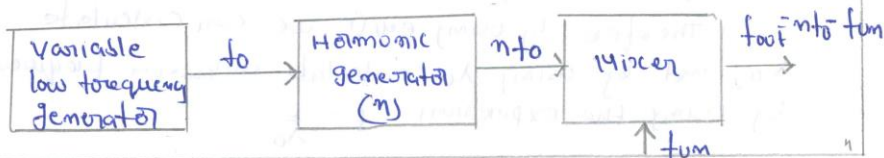 variable
low frequency
generator
fo
Harmonic
generator
(n)
nfo
Mixer
fout = nfo - fum
fum